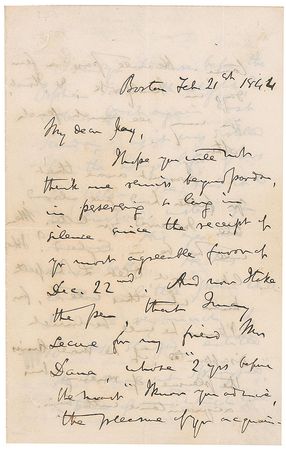 Boston Feb 21st 1844
My dear Jay,
I hope you will not
think me remiss beyond pardon,
in preserving so long in
silence since the receipt of
yr most agreeable favor of
Dec. 22nd. And now I take
the pen, that I may
secure for my friend Mr
Dana, whose "2 yrs before
the mast" I know you admire,
the pleasure of yr acquain-